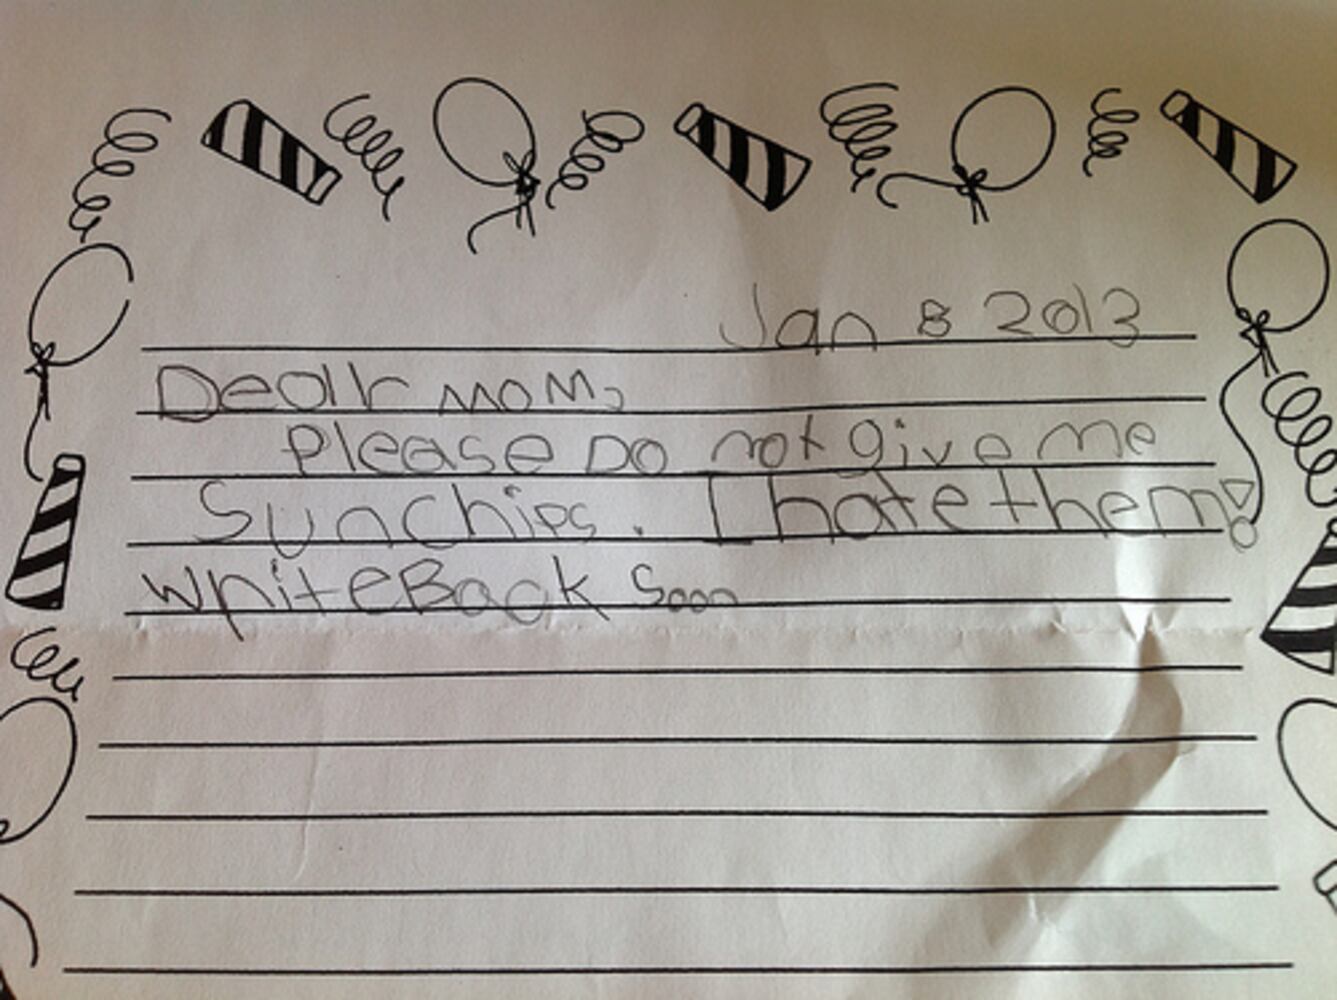 Jan 8 2013
Dear Mom,
Please Do not give me
Sunchips. I hate them!
write Back Soon